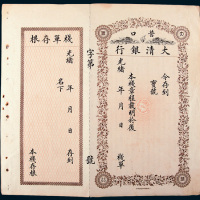 營口
大清銀行
今存到
寶號
本棧章程載明於後
光緒 年 月 日 棧單
字第 號
棧單存根
光緒 年 月 日 存到
名下
本棧存根